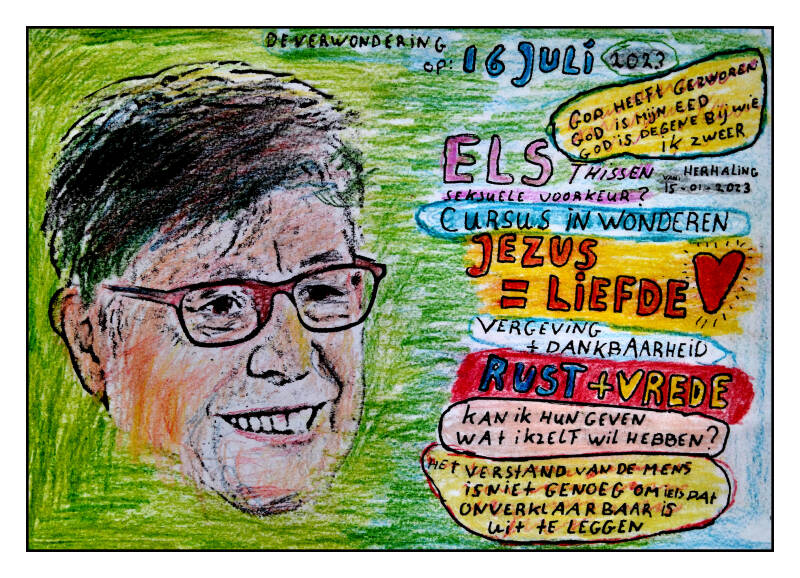 DE VERWONDERING
op: 16 JULI 2023
GOD HEEFT GEZWOREN
GOD IS MIJN EED
GOD IS DEGENE BIJ WIE
IK ZWEER
ELS THISSEN
VAN: HERHALING
15-01-2023
SEKSUELE VOORKEUR?
CURSUS IN WONDEREN
JEZUS
= LIEFDE
VERGEVING
+ DANKBAARHEID
RUST + VREDE
KAN IK HUN GEVEN
WAT IKZELT WIL HEBBEN?
HET VERSTAND VAN DE MENS
IS NIET GENOEG OM IETS DAT
ONVERKLAARBAAR IS
UIT TE LEGGEN